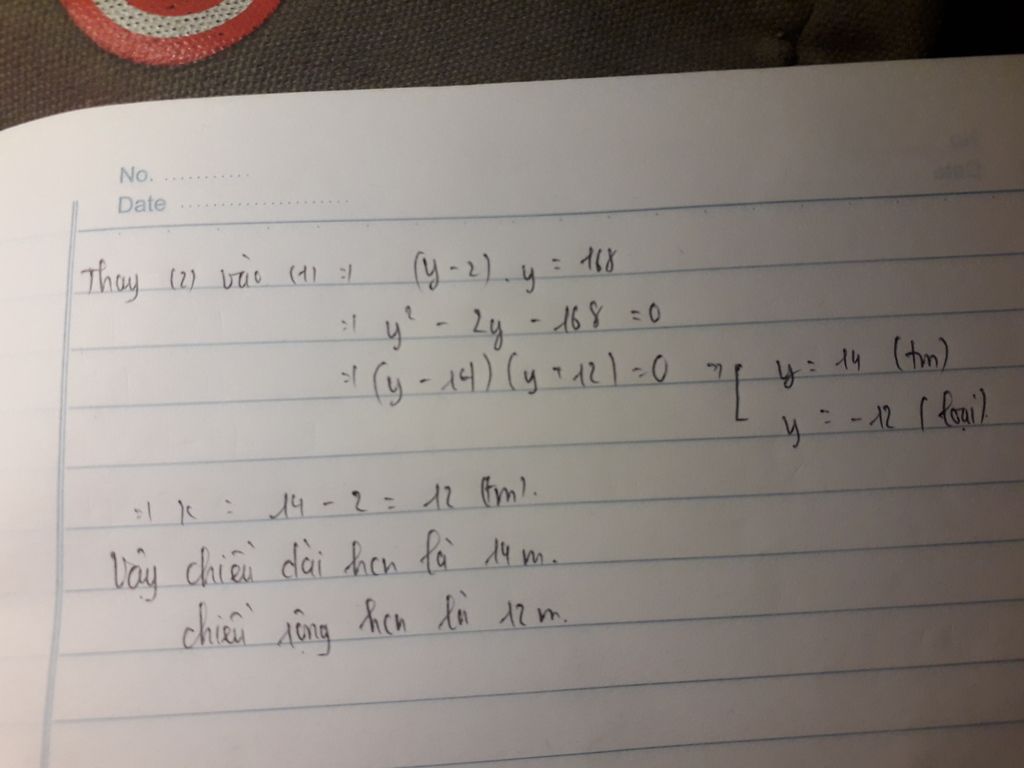 No. ............
Date ........................
Thay (2) vào (1) => (y - 2). y = 168
=> y² - 2y - 168 = 0
=> (y - 14) (y + 12) = 0 => [ y = 14 (tm)
y = -12 (loại).
=> x = 14 - 2 = 12 (tm).
Vậy chiều dài hcn là 14 m.
chiều rộng hcn là 12 m.